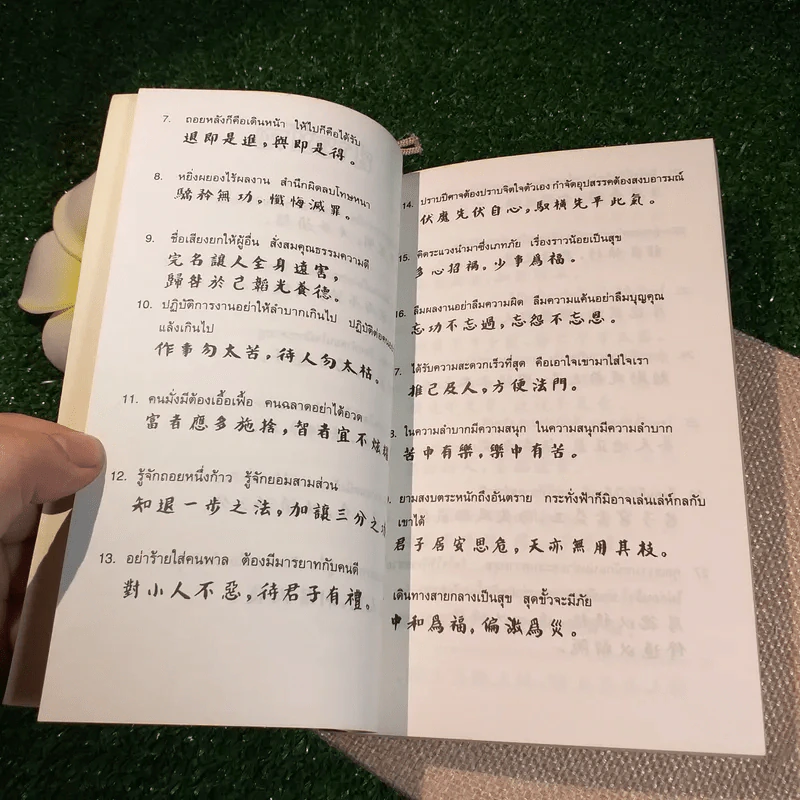 7. ถอยหลังก็คือเดินหน้า ให้ไปก็คือได้รับ
退即是進，與即是得。
8. หยิ่งผยองไร้ผลงาน สำนึกผิดลบโทษหนา
驕矜無功，懺悔滅罪。
9. ชื่อเสียงยกให้ผู้อื่น สั่งสมคุณธรรมความดี
完名讓人全身遠害，
歸咎於己韜光養德。
10. ปฏิบัติการงานอย่าให้ลำบากเกินไป
แล้งเกินไป
作事勿太苦，待人勿太枯。
11. คนมั่งมีต้องเอื้อเฟื้อ คนฉลาดอย่าได้อวด
富者應多施捨，智者宜不炫
12. รู้จักถอยหนึ่งก้าว รู้จักยอมสามส่วน
知退一步之法，加讓三分之
13. อย่าร้ายใส่คนพาล ต้องมีมารยาทกับคนดี
對小人不惡，待君子有禮。
14. ปราบปีศาจต้องปราบจิตใจตัวเอง กำจัดอุปสรรคต้องสงบอารมณ์
伏魔先伏自心，馭橫先平此氣。
15. คิดระแวงนำมาซึ่งเภทภัย เรื่องราวน้อยเป็นสุข
多心招禍，少事為福。
16. ลืมผลงานอย่าลืมความผิด ลืมความแค้นอย่าลืมบุญคุณ
忘功不忘過，忘怨不忘恩。
7. ได้รับความสะดวกเร็วที่สุด คือเอาใจเขามาใส่ใจเรา
推己及人，方便法門。
8. ในความลำบากมีความสนุก ในความสนุกมีความลำบาก
苦中有樂，樂中有苦。
ยามสงบตระหนักถึงอันตราย กระทั่งฟ้าก็มิอาจเล่นเล่ห์กลกับ
เขาได้
君子居安思危，天亦無用其枝。
เดินทางสายกลางเป็นสุข สุดขั้วจะมีภัย
中和為福，偏激為災。